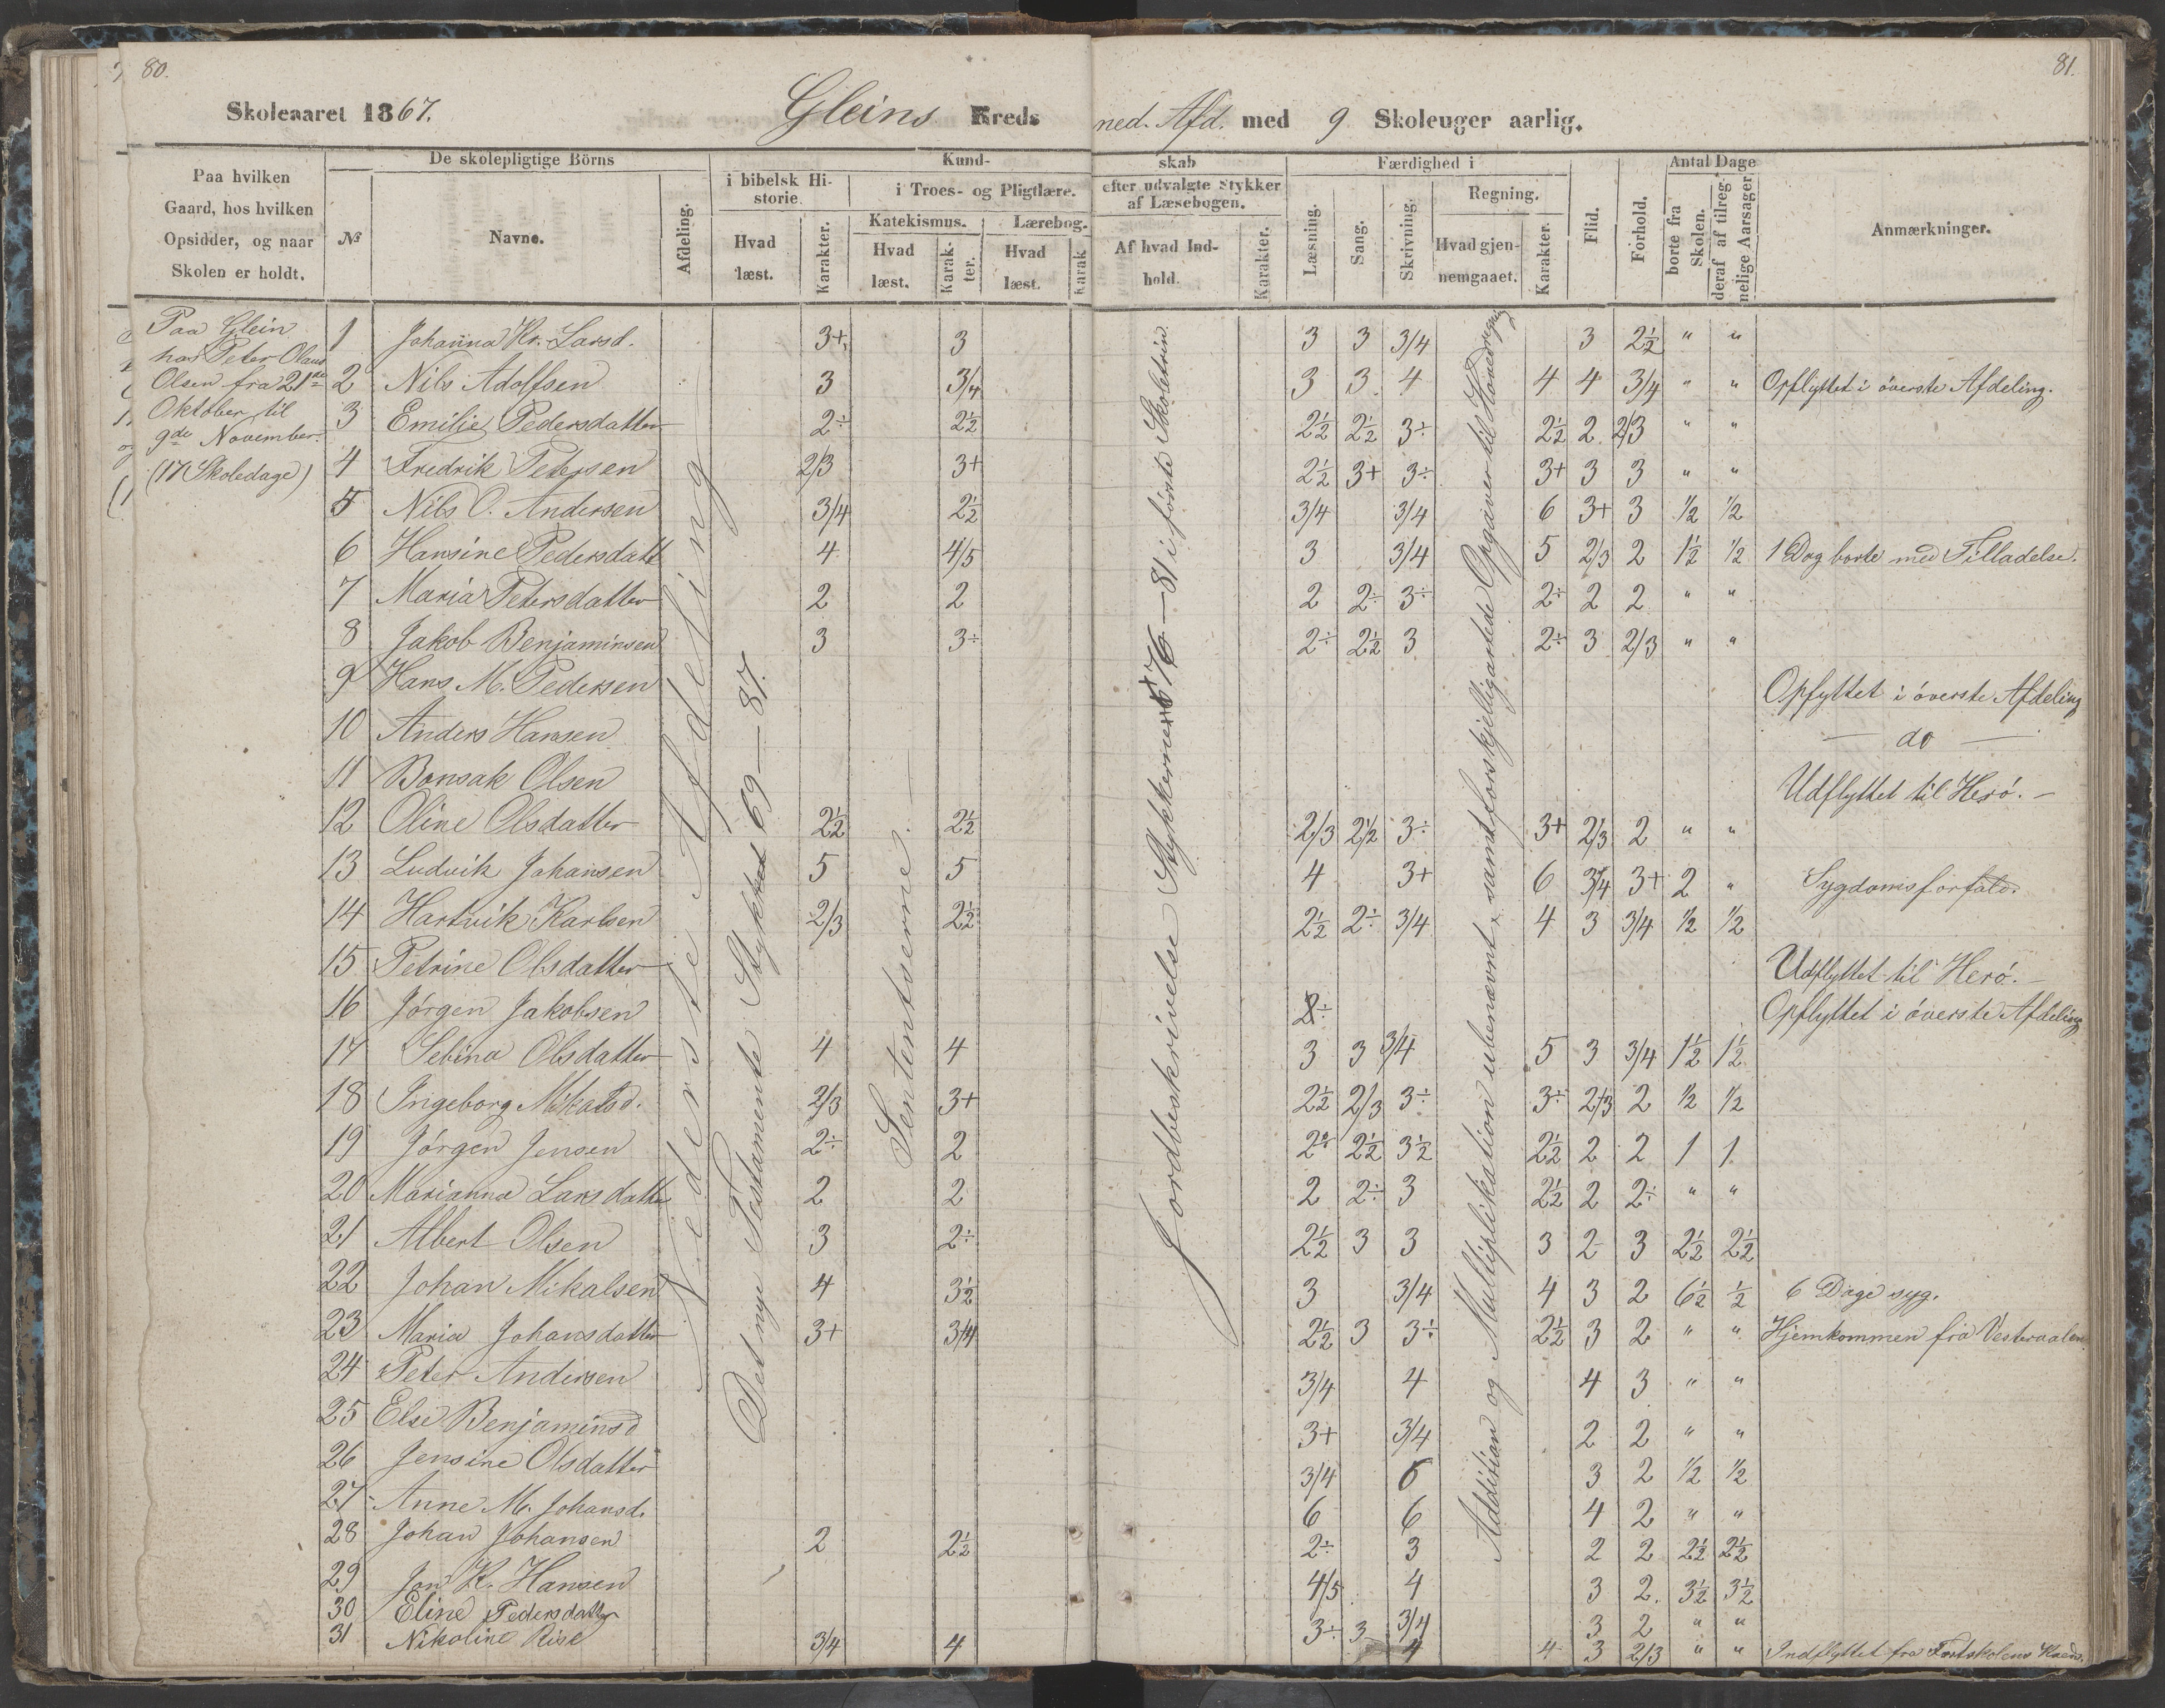 80.
81.
Skoleaaret 1867. Gleins Kreds ned. Afd. med 9 Skoleuger aarlig.
Paa hvilken
Gaard, hos hvilken
Opsidder, og naar
Skolen er holdt.
De skolepligtige Börns
№
Navne.
Afdeling.
Kund-
i bibelsk Hi-
storie.
Hvad
læst.
Karakter.
i Troes- og Pligtlære.
Katekismus.
Hvad
læst.
Karak-
ter.
Lærebog.
Hvad
læst.
Karak
skab
efter udvalgte Stykker
af Læsebogen.
Af hvad Ind-
hold.
Karakter.
Færdighed i
Læsning.
Sang.
Skrivning.
Regning.
Hvad gjen-
nemgaaet.
Karakter.
Flid.
Forhold.
Antal Dage
borte fra
Skolen.
deraf af tilreg-
nelige Aarsager.
Anmærkninger.
Paa Glein
hos Peter Olaus
Olsen fra 21de
Oktober til
9de November.
(17 Skoledage)
Nederste Afdeling
Det nye Testamente Stykket 69 — 87.
Sentenserne. —
Jordbeskrivelse Stykkerne 76 — 81 i förste Skoletrin.
Addition og Multiplikation ubenævnt, samt forskjelligartede Opgaver til Hovedregning
1 Johanna Kr. Larsd. 3+ 3 3 3 3/4 3 2½ " "
2 Nils Adolfsen 3 3/4 3 3 4 4 4 3/4 " " Opflyttet i överste Afdeling.
3 Emilie Pedersdatter 2÷ 2½ 2½ 2½ 3÷ 2½ 2 2/3 " "
4 Fredrik Petersen 2/3 3+ 2½ 3+ 3÷ 3+ 3 3 " "
5 Nils O. Andersen 3/4 2½ 3/4 3/4 6 3+ 3 ½ ½
6 Hansine Pedersdatt 4 4/5 3 3/4 5 2/3 2 1½ ½ 1 Dag borte med Tilladelse.
7 Maria Petersdatter 2 2 2 2÷ 3÷ 2÷ 2 2 " "
8 Jakob Benjaminsen 3 3÷ 2÷ 2½ 3 2÷ 3 2/3 " "
9 Hans M. Pedersen Opflyttet i överste Afdeling
10 Anders Hansen — do —
11 Bonsak Olsen Udflyttet til Herö. —
12 Oline Olsdatter 2½ 2½ 2/3 2½ 3÷ 3+ 2/3 2 " "
13 Ludvik Johansen 5 5 4 3+ 6 3/4 3+ 2 " Sygdomsforfald.
14 Hartvik Karlsen 2/3 2½ 2½ 2÷ 3/4 4 3 3/4 ½ ½
15 Petrine Olsdatter Udflyttet til Herö. —
16 Jörgen Jakobsen 2÷ Opflyttet i överste Afdeling
17 Sebina Olsdatter 4 4 3 3 3/4 5 3 3/4 1½ 1½
18 Ingeborg Mikalsd. 2/3 3+ 2½ 2/3 3÷ 3÷ 2/3 2 ½ ½
19 Jörgen Jensen 2÷ 2 2÷ 2½ 3½ 2½ 2 2 1 1
20 Marianna Larsdatter 2 2 2 2÷ 3 2½ 2 2÷ " "
21 Albert Olsen 3 2÷ 2½ 3 3 3 2 3 2½ 2½
22 Johan Mikalsen 4 3½ 3 3/4 4 3 2 6½ ½ 6 Dage syg.
23 Maria Johansdatter 3+ 3/4 2½ 3 3÷ 2½ 3 2 " " Hjemkommen fra Vesteraalen
24 Peter Andersen 3/4 4 4 3 " "
25 Else Benjaminsd 3+ 3/4 2 2 " "
26 Jensine Olsdatter 3/4 6 3 2 ½ ½
27 Anne M. Johansd. 6 6 4 2 " "
28 Johan Johansen 2 2½ 2÷ 3 2 2 2½ 2½
29 Jon K. Hansen 4/5 4 3 2. 3½ 3½
30 Eline Pedersdatter 3÷ 3 3/4 3 2 " "
31 Nikoline Rise 3/4 4 4 4 3 2/3 " " Indflyttet fra Kreds.